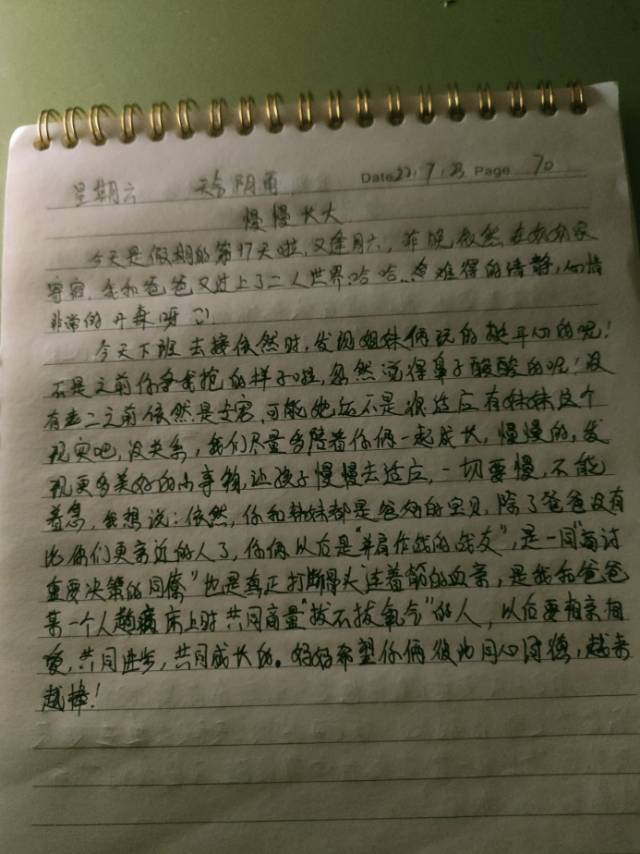 星期六 天气阴雨 Date 23.7.23 Page 70
慢慢长大
今天是假期的第17天啦,又逢周六,昨晚依然在奶奶家
寄宿,我和爸爸又过上了二人世界,哈哈,难得的清静,心情
非常的开森呀
今天下班去接依然时,发现姐妹俩玩的挺开心的呢!
不是之前你争我抢的样子啦,忽然觉得鼻子酸酸的呢!没
有老二之前依然是专宠,可能她还不是很适应有妹妹这个
现实吧,没关系,我们尽量多陪着你俩一起成长,慢慢的,发
现更多美好的小事物,让孩子慢慢去适应,一切要慢,不能
着急,我想说:依然,你和妹妹都是爸妈的宝贝,除了爸爸没有
比你们更亲近的人了,你俩以后是“并肩作战的战友”,是一同“商讨
重要决策的同僚”也是真正打断骨头连着筋的血亲,是我和爸爸
某一个人躺病床上时共同商量“拔不拔氧气”的人,以后要相亲相
爱,共同进步,共同成长的。妈妈希望你俩彼此同心同德,越来
越棒!